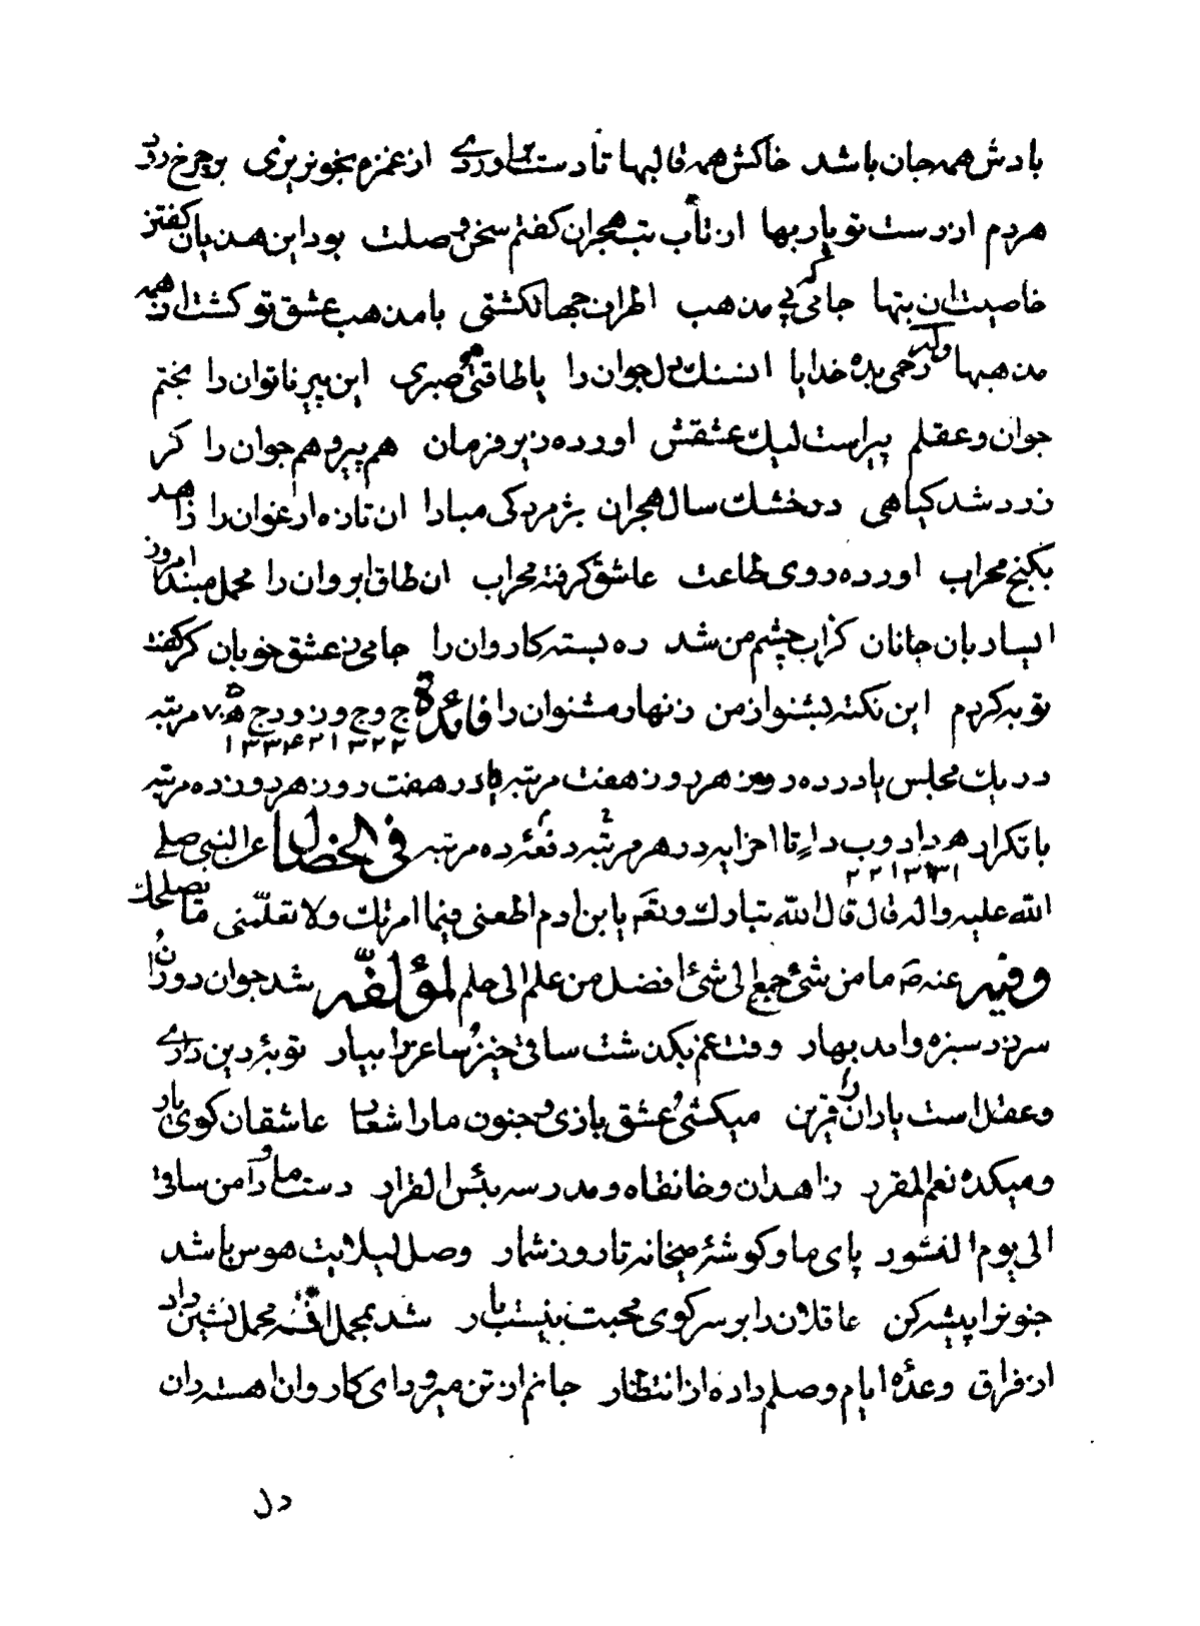 بادش همه جان باشد خاکش همه قالبها تا دست براوردی از غمزه بخونریزی بر چرخ رود
هردم از دست تو یاربها از تاب تب هجران کفتم سخن وصلت بود این هذیان کفتن
خاصیت ان تبها جامی که پی مذهب اطراف جهان کشتی با مذهب عشق تو کشت از همه
مذهبها وله رحمی بده خدایا ان سنک دل جوان را یا طاقتی و صبری این پیر ناتوان را بختم
جوان و عقلم پیر است لیک عشقش اورده زیر فرمان هم پیر و هم جوان را کر
زرد شد کیاهی در خشک سال هجران پژمردکی مبادا ان تازه ارغوان را زاهد
بکنج محراب اورده روی طاعت عاشق کرفته محراب ان طاق ابروان را محمل مبند امروز
ای ساربان جانان کز اب چشم من شد ره بسته کاروان را جامی ز عشق خوبان کر کفت
توبه کردم این نکته بشنو از من زنهار مشنو ان را فائدة ج وج و ز و ر ج ه ۷۰ مرتبه
۱ ۳ ۳ ۴ ۲ ۱ ۳ ۲ ۲
در یک مجلس یا در ده روز هر روز هفت مرتبه یا در هفت روز هر روز ده مرتبه
با تکرار ه د ا د و ب د ا ء تا اخر ایه در هر مرتبه دفعه ده مرتبه فی الخصال عن النبی صلی
الله علیه و اله قال قال الله تبارک و تعم یابن ادم اطعنی فیما امرتک و لا تعلّمنی ما یصلحک
و فیه عنه ص ما من شئ جمع الی شئ افضل من علم الی حلم لمؤلفه شد جوان دوران
سر زد سبزه و امد بهار وقت غم بکذشت ساقی خیز و ساغر را بیار توبه در دین داری
و عقل است یاران را قرین میکشی و عشق بازی و جنون ما را شعار عاشقان کوی یار
و میکده نعم المقر زاهدان و خانقاه و مدرسه بئس القرار دست ما و دامن ساقی
الی یوم النشور پای ما و کوشهٔ میخانه تا روز شمار وصل لیلایت هوس باشد
جنون را پیشه کن عاقلان را بر سر کوی محبت نیست بار شد بمحمل محمل نشین داد
از فراق وعدهٔ ایام وصلم داده از انتظار جانم از تن میرود ای کاروان اهسته ران
دل